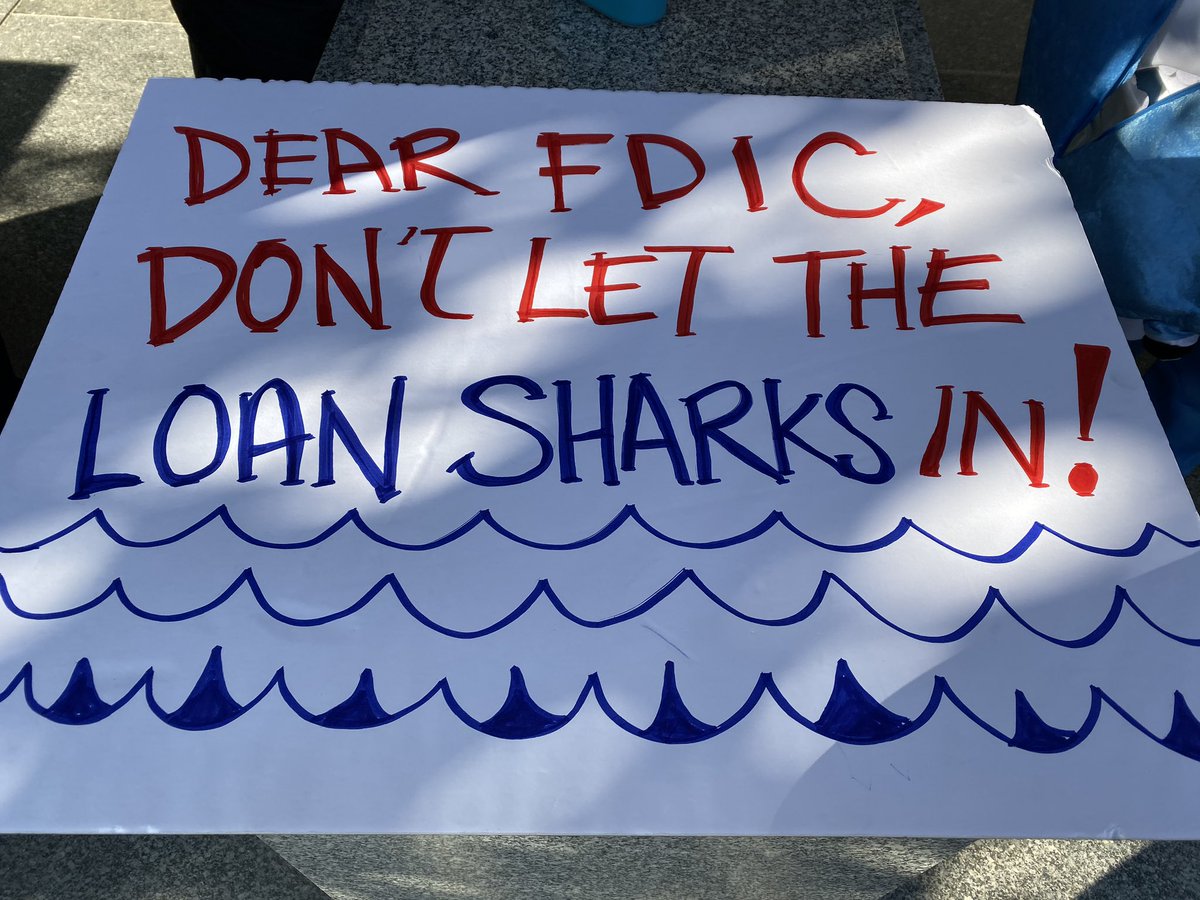 DEAR FDIC,
DON'T LET THE
LOAN SHARKS IN!